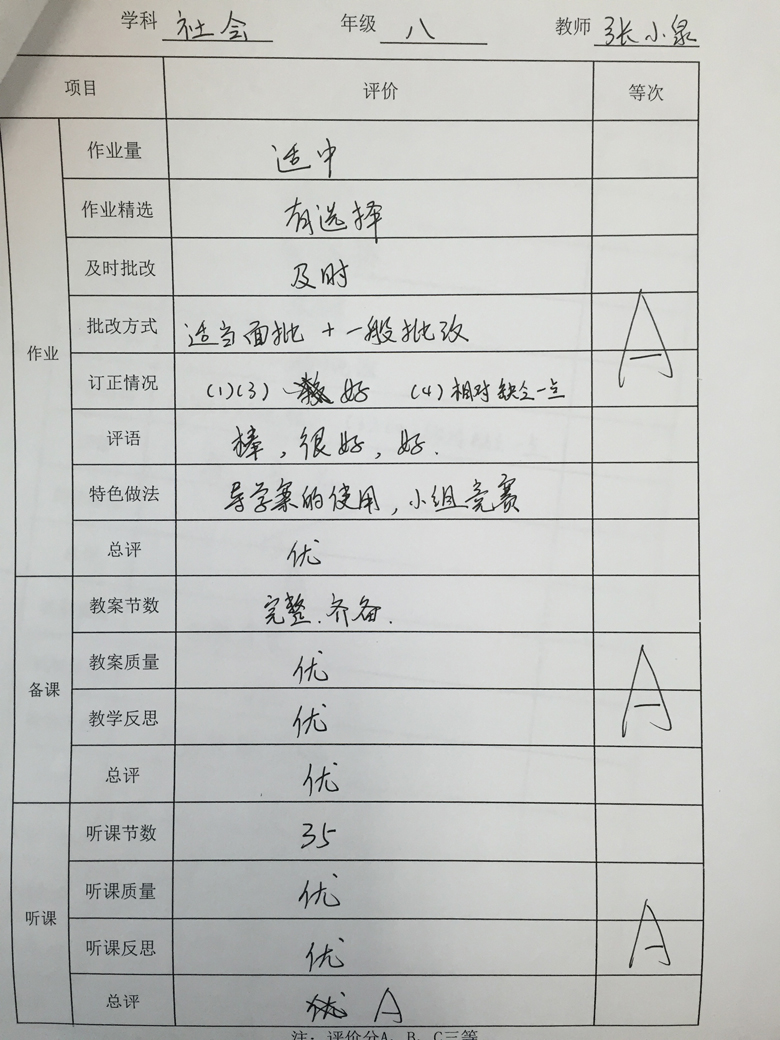 学科 社会 年级 八 教师 张小泉
项目 评价 等次
作业 作业量 适中
作业精选 有选择
及时批改 及时
批改方式 适当面批 + 一般批改 A
订正情况 (1)(3) 好 (4)相对缺乏一点
评语 棒，很好，好.
特色做法 导学案的使用，小组竞赛
总评 优
备课 教案节数 完整.齐备.
教案质量 优 A
教学反思 优
总评 优
听课 听课节数 35
听课质量 优
听课反思 优 A
总评 优 A
注：评价分A、B、C三等